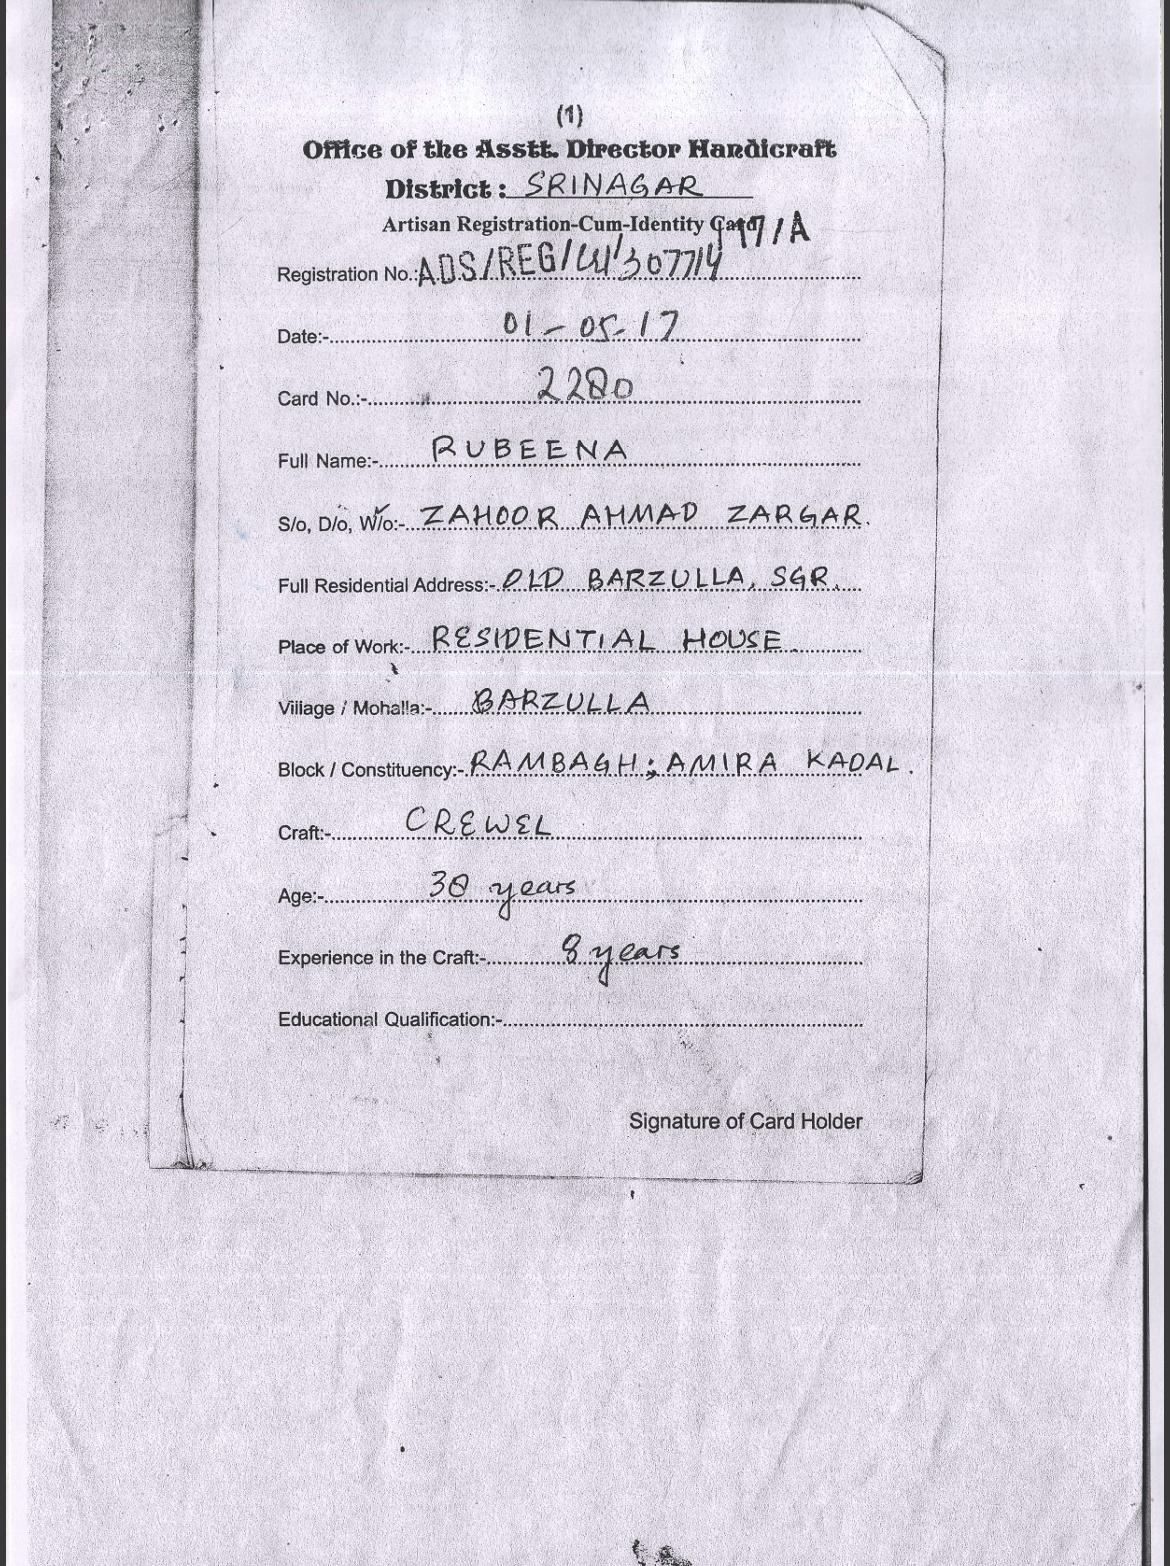 (1)
Office of the Asstt. Director Handicraft
District : SRINAGAR
Artisan Registration-Cum-Identity Card
Registration No.: ADS/REG/ /307714 17/A
Date:- 01-05-17
Card No.:- 2280
Full Name:- RUBEENA
S/o, D/o, W/o:- ZAHOOR AHMAD ZARGAR.
Full Residential Address:- OLD BARZULLA, SGR.
Place of Work:- RESIDENTIAL HOUSE
Village / Mohalla:- BARZULLA
Block / Constituency:- RAMBAGH; AMIRA KADAL.
Craft:- CREWEL
Age:- 30 years
Experience in the Craft:- 8 years
Educational Qualification:-
Signature of Card Holder